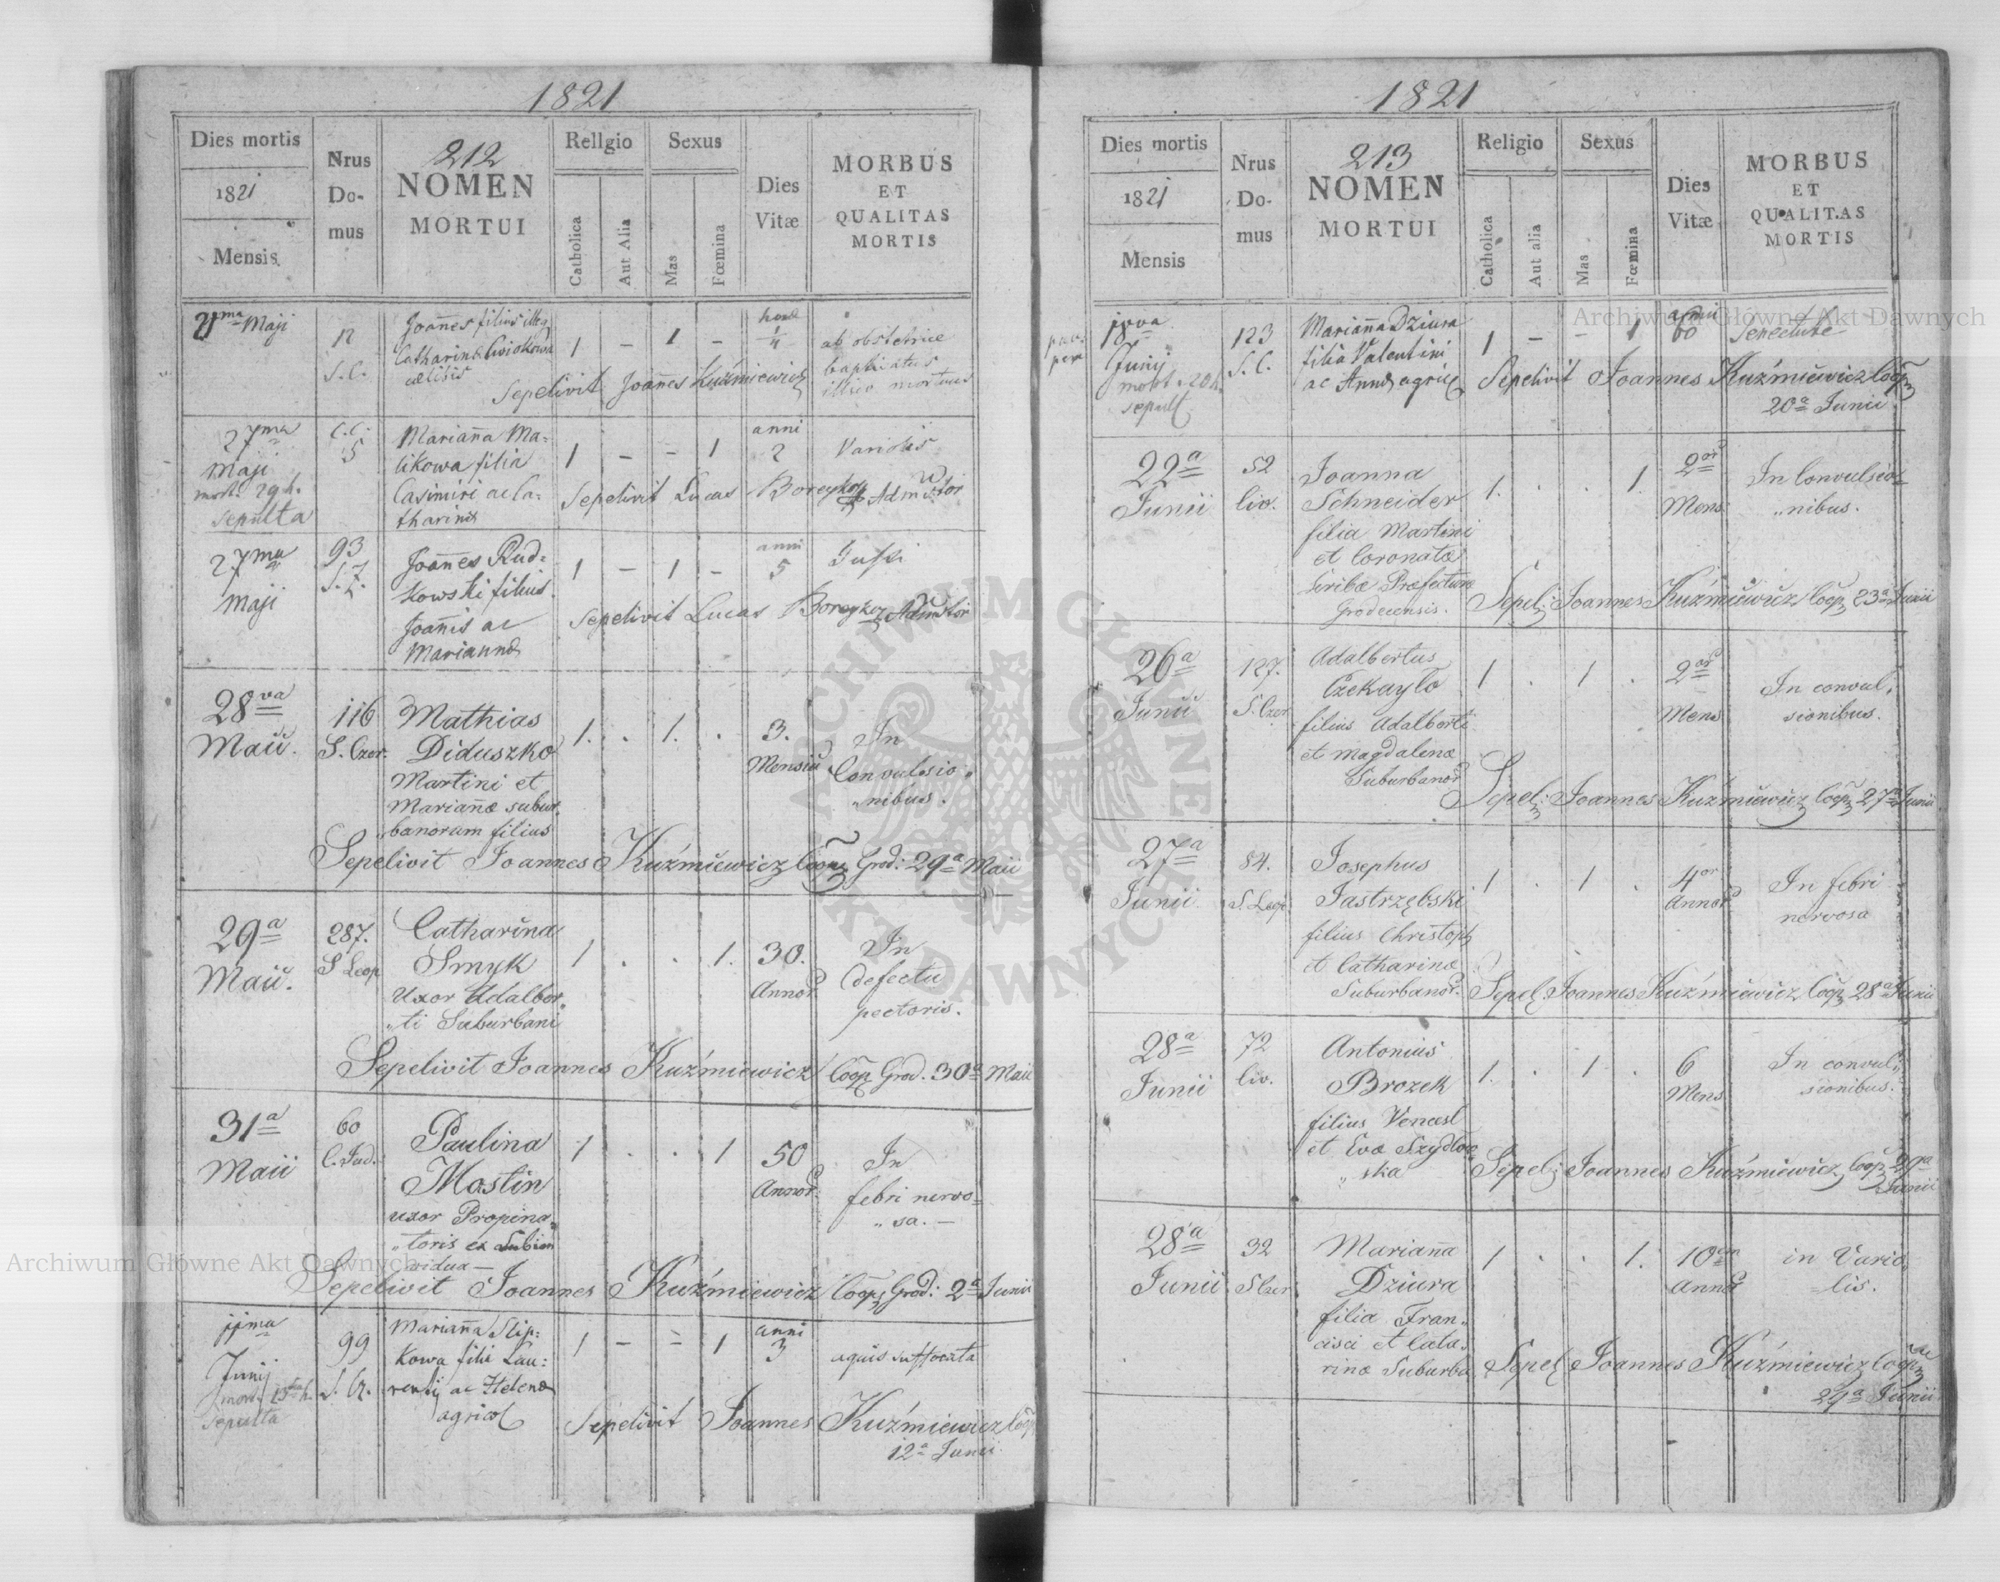 1821
Dies mortis
1821
Mensis
Nrus
Do-
mus
212
NOMEN
MORTUI
Rellgio
Catholica
Aut Alia
Sexus
Mas
Fœmina
Dies
Vitæ
MORBUS
ET
QUALITAS
MORTIS
21ma Maji
12
S.C.
Joañes filius illeg
Catharinæ
cælibis
1 – 1 –
horæ
1/4
ab obstetrice
baptisatus
illico mortuus
Sepelivit Joañes Kuźmiewicz
27ma
Maji
mort. 29 h.
sepulta
C.C.
5
Mariaña Ma-
likowa filia
Casimiri ac Ca-
tharinæ
1 – – 1
anni
2
Variolis
Sepelivit Lucas Boreyko Admstor
27ma
Maji
93
Joañes Rud-
kowski filius
Joañis ac
Mariannæ
1 – 1 –
anni
5
Tussi
Sepelivit Lucas Boreyko Admstor
28va
Maii.
116
S. Czer.
Mathias
Diduszko
Martini et
Mariañæ subur
banorum filius
1. . 1. .
3.
Mensiũ
In
Convulsio„
„nibus.
Sepelivit Joannes Kuźmiewicz Coop Grod: 29a Maii
29a
Maii.
287.
S Leop
Catharina
Smyk
Uxor Adalber„
„ti Suburbani
1 . . 1.
30.
Annor.
In
defectu
pectoris.
Sepelivit Joannes Kuźmiewicz Coop Grod. 30a Maii
31a
Maii
60
C. Jud.
Paulina
Mostin
uxor Propina„
„toris ex
vidua —
1 . . 1
50
Annor.
In
febri nervo=
„sa. —
Sepelivit Joannes Kuźmiewicz Coop Grod: 2a Junii
jjma
Junij
sepulta
99
S. Cz.
Mariaña Slip-
kowa filia Lau-
rentij ac Helenæ
agricol
1 – – 1
anni
3
aquis suffocata
Sepelivit Joannes Kuźmiewicz Coop
12a Junii
1821
Dies mortis
1821
Mensis
Nrus
Do-
mus
213
NOMEN
MORTUI
Religio
Catholica
Aut alia
Sexus
Mas
Fœmina
Dies
Vitæ
MORBUS
ET
QUALITAS
MORTIS
18
Junij
mort. 20 h.
sepult
123
S.C.
Mariaña Dziura
filia Valentini
ac Annæ agric
1 – – 1
anni
60
Senectute
Sepelivit Joannes Kuźmiewicz Coop
20a Junii
22a
Junii
52
Civ.
Joanna
Schneider
filia Martini
et Coronatæ
Scribæ Præfecturæ
Grodecensis.
1. . . 1.
2or
Mens
In Convulsio=
„nibus.
Sepel: Joannes Kuźmiewicz Coop 23a Junii
26a
Junii
127.
S. Czer
Adalbertus
Czekaylo
filius Adalberti
et Magdalenæ
Suburbanor
1 . 1 .
2or
Mens
In convul„
sionibus.
Sepel: Joannes Kuźmiewicz Coop 27a Junii
27a
Junii
84.
S. Leop
Josephus
Jastrzębski
filius Christoph
et Catharinæ
Suburbanor.
1 . 1 .
4or
Annor
In febri
nervosa
Sepel Joannes Kuźmiewicz Coop 28a Junii
28a
Junii
72
Civ.
Antonius
Brozek
filius Vencesl
et Evæ Szydlow
„ska
1. . 1 .
6
Mens
In convul„
sionibus.
Sepel: Joannes Kuźmiewicz Coop 29a
Junii
28a
Junii
32
S Czer
Mariaña
Dziura
filia Fran„
cisci et Cata„
rinæ Suburba
1 . . 1.
10
Annor
in Vario
=lis.
Sepel Joannes Kuźmiewicz Coop
29a Junii
Archiwum Główne Akt Dawnych
Archiwum Główne Akt Dawnych
ARCHIWUM GŁÓWNE AKT DAWNYCH